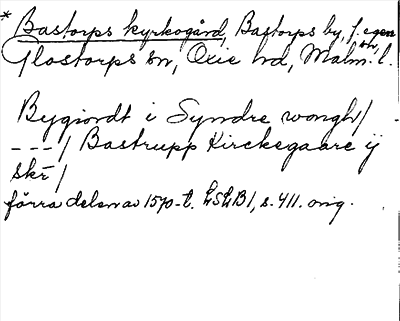 * Bastorps kyrkogård, Bastorps by, f. egen
Glostorps sn, Oxie hd, Malm. l.
Bygiordt i Syndre wongh/
---/ Bastrupp Kirckegaare ij
skr/
förra delen av 1570-t. LSLB1, s. 411. orig.